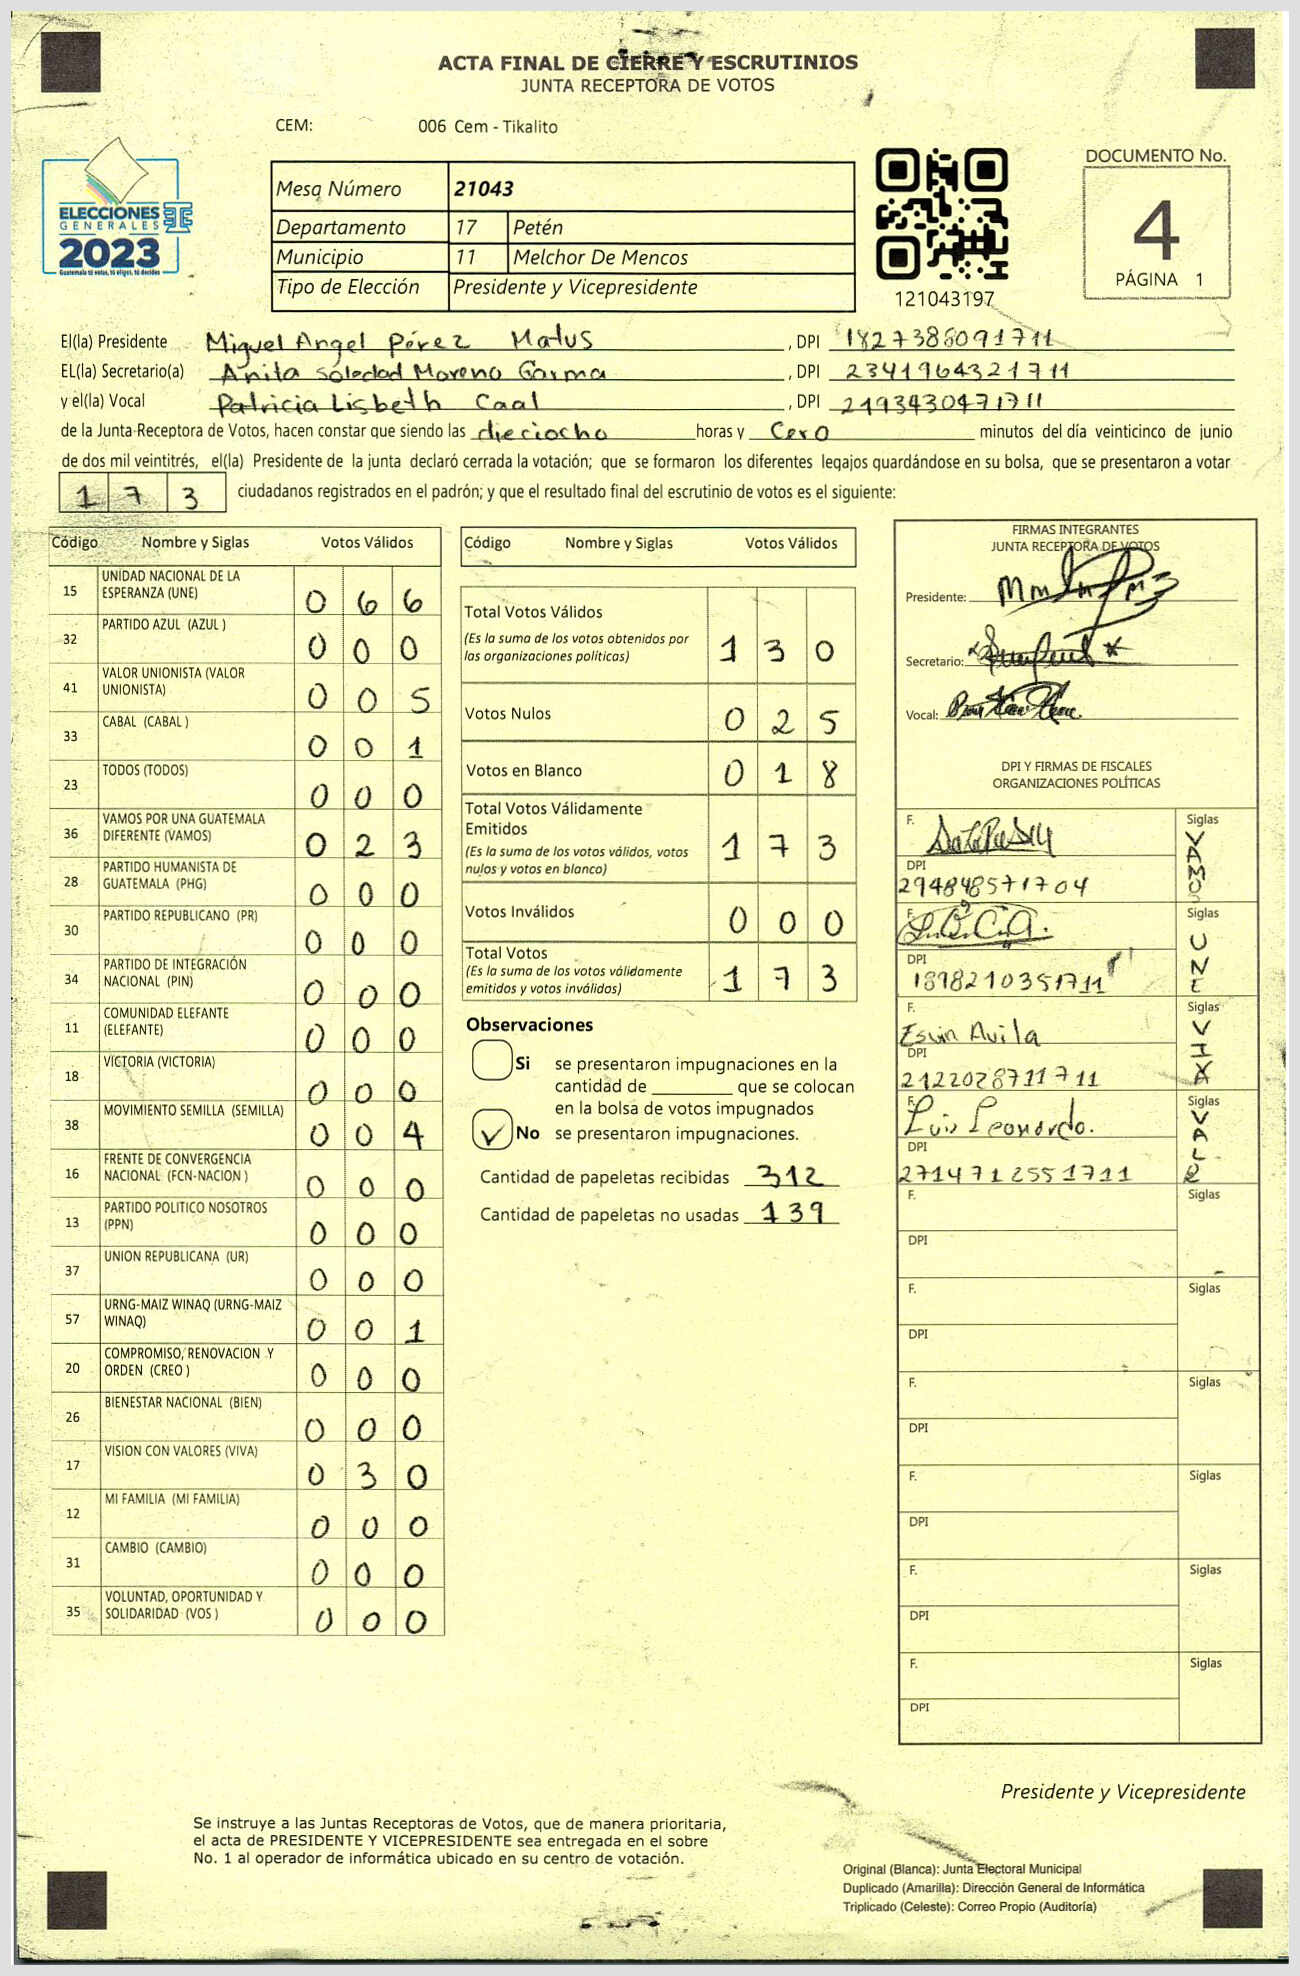 ACTA FINAL DE CIERRE Y ESCRUTINIOS
JUNTA RECEPTORA DE VOTOS
CEM: 006 Cem - Tikalito
ELECCIONES
GENERALES
2023
Guatemala tú votas, tú eliges, tú decides
Mesa Número 21043
Departamento 17 Petén
Municipio 11 Melchor De Mencos
Tipo de Elección Presidente y Vicepresidente
121043197
DOCUMENTO No.
4
PÁGINA 1
El(la) Presidente Miguel Angel Pérez Matus , DPI 1827386091711
EL(la) Secretario(a) Anita Soledad Moreno Garma , DPI 2341964321711
y el(la) Vocal Patricia Lisbeth Caal , DPI 2193430471711
de la Junta Receptora de Votos, hacen constar que siendo las dieciocho horas y Cero minutos del día veinticinco de junio
de dos mil veintitrés, el(la) Presidente de la junta declaró cerrada la votación; que se formaron los diferentes legajos guardándose en su bolsa, que se presentaron a votar
1 7 3 ciudadanos registrados en el padrón; y que el resultado final del escrutinio de votos es el siguiente:
Código Nombre y Siglas Votos Válidos
15 UNIDAD NACIONAL DE LA
ESPERANZA (UNE) 0 6 6
32 PARTIDO AZUL (AZUL ) 0 0 0
41 VALOR UNIONISTA (VALOR
UNIONISTA) 0 0 5
33 CABAL (CABAL ) 0 0 1
23 TODOS (TODOS) 0 0 0
36 VAMOS POR UNA GUATEMALA
DIFERENTE (VAMOS) 0 2 3
28 PARTIDO HUMANISTA DE
GUATEMALA (PHG) 0 0 0
30 PARTIDO REPUBLICANO (PR) 0 0 0
34 PARTIDO DE INTEGRACIÓN
NACIONAL (PIN) 0 0 0
11 COMUNIDAD ELEFANTE
(ELEFANTE) 0 0 0
18 VICTORIA (VICTORIA) 0 0 0
38 MOVIMIENTO SEMILLA (SEMILLA) 0 0 4
16 FRENTE DE CONVERGENCIA
NACIONAL (FCN-NACION ) 0 0 0
13 PARTIDO POLITICO NOSOTROS
(PPN) 0 0 0
37 UNION REPUBLICANA (UR) 0 0 0
57 URNG-MAIZ WINAQ (URNG-MAIZ
WINAQ) 0 0 1
20 COMPROMISO, RENOVACION Y
ORDEN (CREO ) 0 0 0
26 BIENESTAR NACIONAL (BIEN) 0 0 0
17 VISION CON VALORES (VIVA) 0 3 0
12 MI FAMILIA (MI FAMILIA) 0 0 0
31 CAMBIO (CAMBIO) 0 0 0
35 VOLUNTAD, OPORTUNIDAD Y
SOLIDARIDAD (VOS ) 0 0 0
Código Nombre y Siglas Votos Válidos
Total Votos Válidos
(Es la suma de los votos obtenidos por
las organizaciones políticas) 1 3 0
Votos Nulos 0 2 5
Votos en Blanco 0 1 8
Total Votos Válidamente
Emitidos
(Es la suma de los votos válidos, votos
nulos y votos en blanco) 1 7 3
Votos Inválidos 0 0 0
Total Votos
(Es la suma de los votos válidamente
emitidos y votos inválidos) 1 7 3
Observaciones
Si se presentaron impugnaciones en la
cantidad de ________ que se colocan
en la bolsa de votos impugnados
No se presentaron impugnaciones.
Cantidad de papeletas recibidas 312
Cantidad de papeletas no usadas 139
FIRMAS INTEGRANTES
JUNTA RECEPTORA DE VOTOS
Presidente:
Secretario:
Vocal:
DPI Y FIRMAS DE FISCALES
ORGANIZACIONES POLÍTICAS
F. Siglas VAMOS
DPI
294848571704
F. Siglas UNE
DPI
1898210351711
F. Siglas
Esvin Avila
DPI
2122028711711
F. Siglas VALR
Luis Leonardo.
DPI
2714712551711
F. Siglas
DPI
F. Siglas
DPI
F. Siglas
DPI
F. Siglas
DPI
F. Siglas
DPI
F. Siglas
DPI
Presidente y Vicepresidente
Se instruye a las Juntas Receptoras de Votos, que de manera prioritaria,
el acta de PRESIDENTE Y VICEPRESIDENTE sea entregada en el sobre
No. 1 al operador de informática ubicado en su centro de votación.
Original (Blanca): Junta Electoral Municipal
Duplicado (Amarilla): Dirección General de Informática
Triplicado (Celeste): Correo Propio (Auditoría)